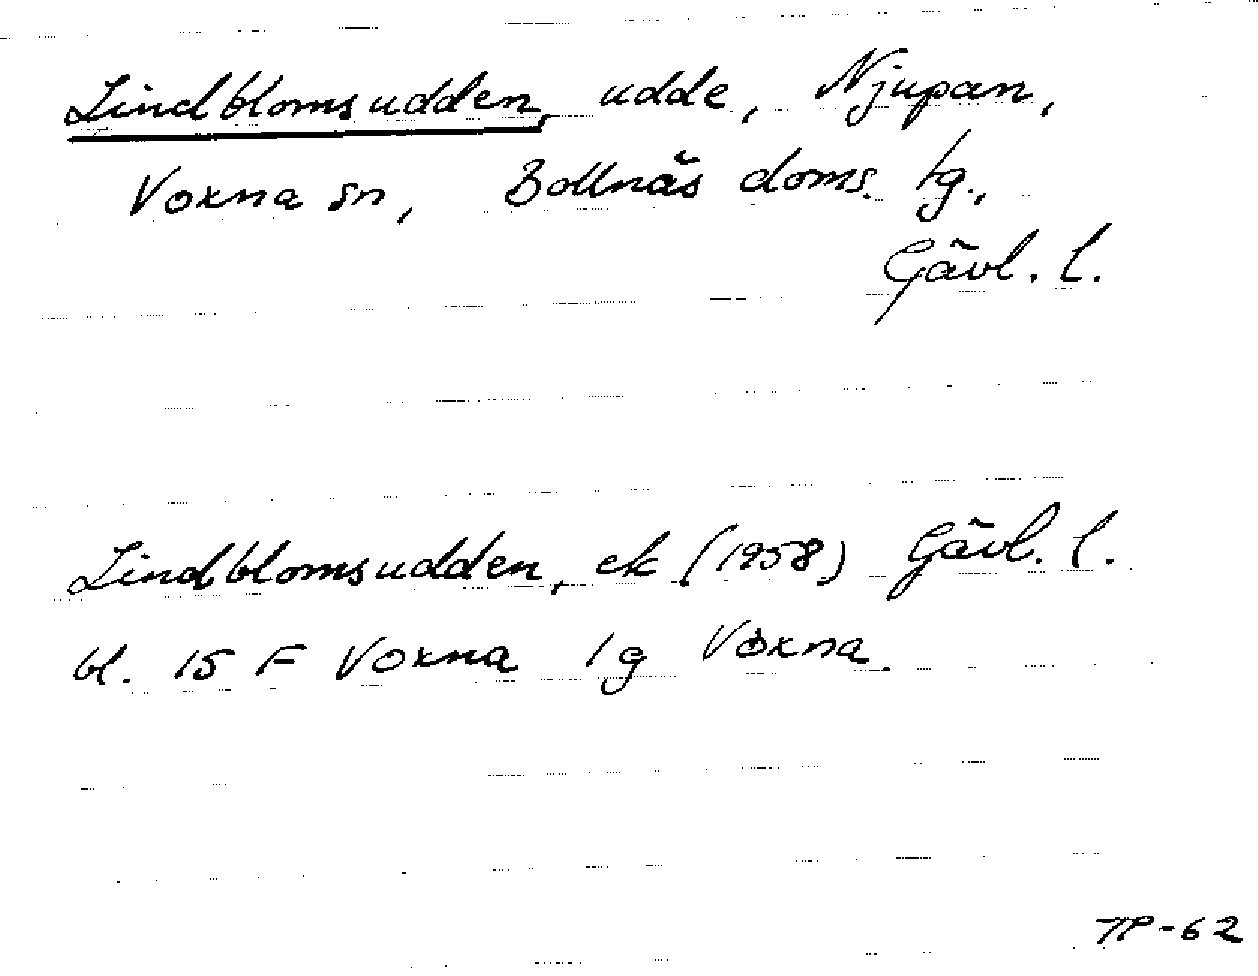 Lindblomsudden, udde, Njupan,
Voxna sn, Bollnäs doms. tg.,
Gävl. l.
Lindblomsudden, ek (1958) Gävl. l.
bl. 15 F Voxna 1g Voxna.
TP-62